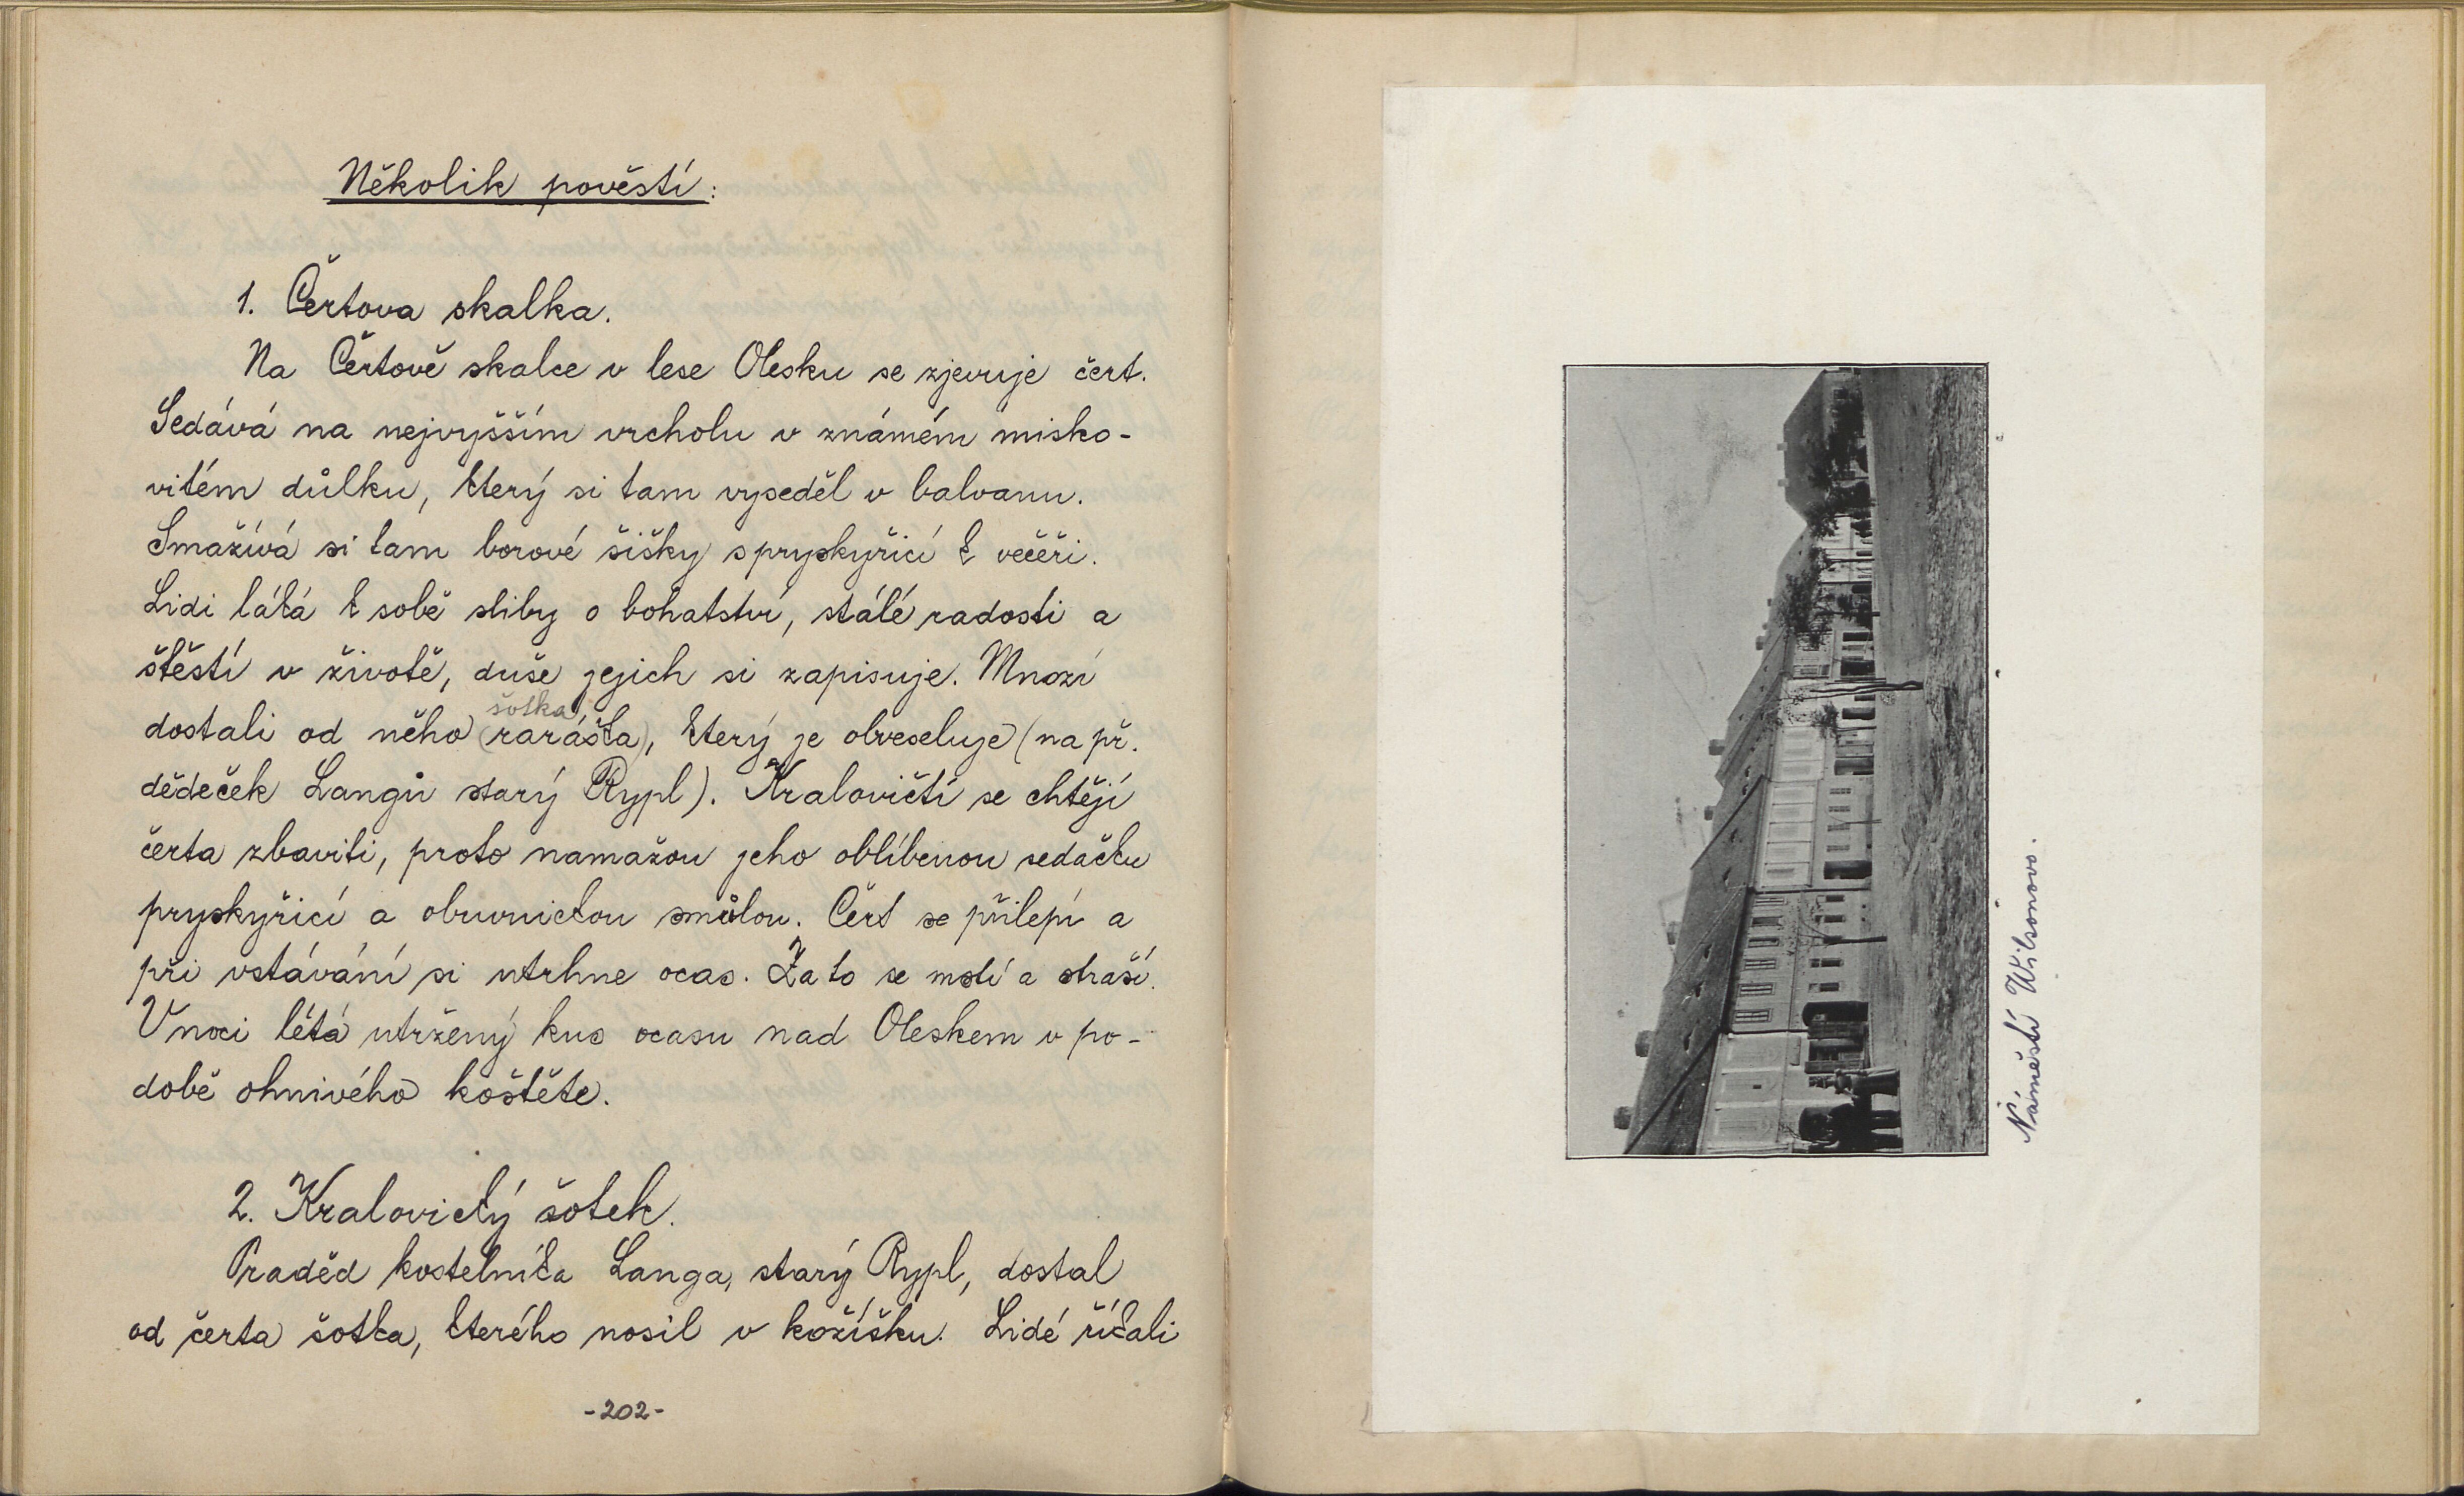 Několik pověstí:
1. Čertova skalka.
Na Čertově skalce v lese Olesku se zjevuje čert.
Sedává na nejvyšším vrcholu v známém misko-
vitém důlku, který si tam vyseděl v balvanu.
Smažívá si tam borové šišky s pryskyřicí k večeři.
Lidi láká k sobě sliby o bohatství, stálé radosti a
štěstí v životě, duše jejich si zapisuje. Mnozí
šotka
dostali od něho (raráška), který je obveseluje (na př.
dědeček Langů starý Rypl). Kralovičtí se chtějí
čerta zbaviti, proto namažou jeho oblíbenou sedačku
pryskyřicí a obuvnickou smůlou. Čert se přilepí a
při vstávání si utrhne ocas. Za to se mstí a straší.
V noci létá utržený kus ocasu nad Oleskem v po-
době ohnivého koštěte.
2. Kralovický šotek.
Praděd kostelníka Langa, starý Rypl, dostal
od čerta šotka, kterého nosil v kožíšku. Lidé říkali
-202-
Náměstí Wilsonovo.